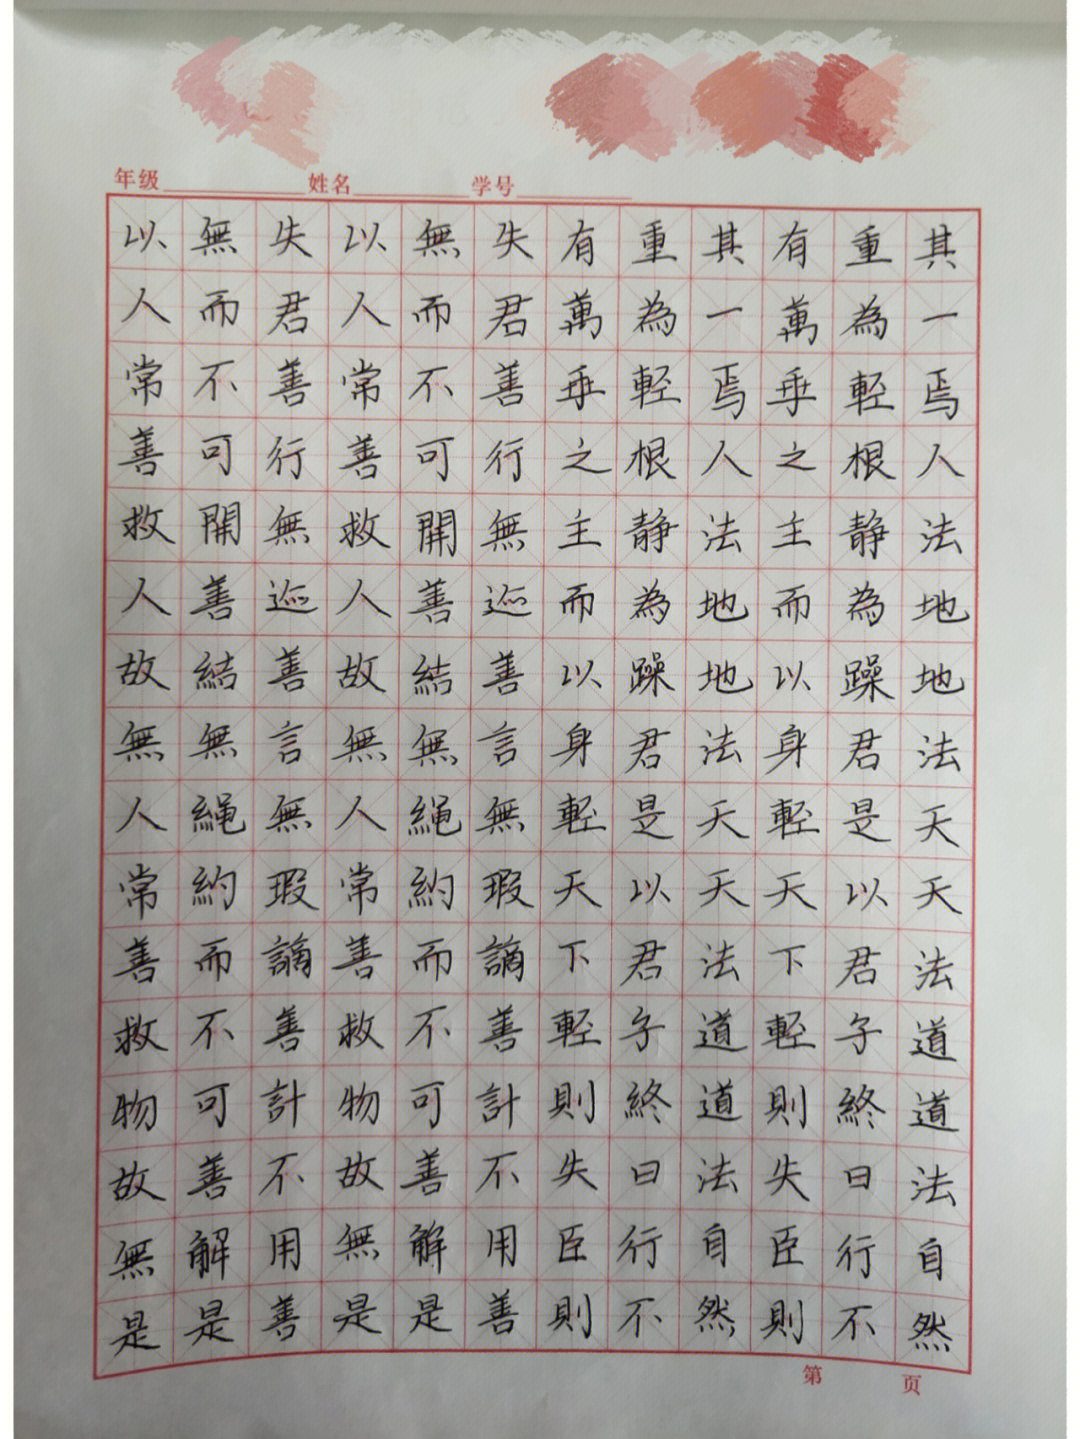 年级 姓名 学号
其一焉人法地地法天天法道道法自然
重為輕根静為躁君是以君子終日行不
有萬乗之主而以身輕天下輕則失臣則
其一焉人法地地法天天法道道法自然
重為輕根静為躁君是以君子終日行不
有萬乗之主而以身輕天下輕則失臣則
失君善行無迹善言無瑕謫善計不用善
無而不可開善結無繩約而不可善解是
以人常善救人故無人常善救物故無是
失君善行無迹善言無瑕謫善計不用善
無而不可開善結無繩約而不可善解是
以人常善救人故無人常善救物故無是
第 页